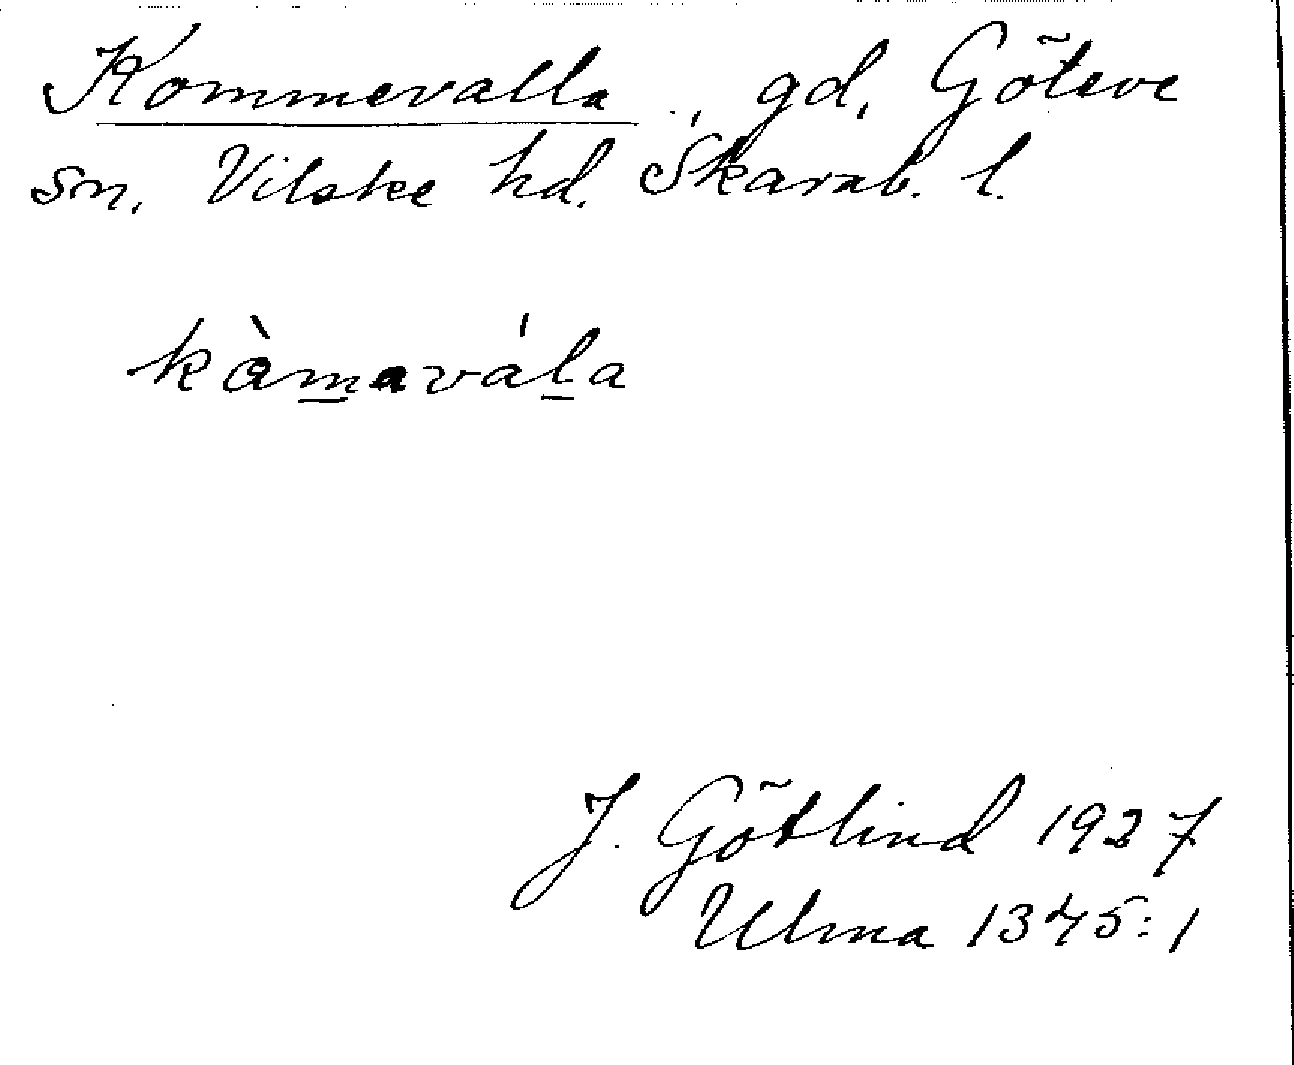 Kommevalla, gd, Göteve
sn. Vilske hd. Skarab. l.
kàmavála
J. Götlind 1927
Ulma 1345:1